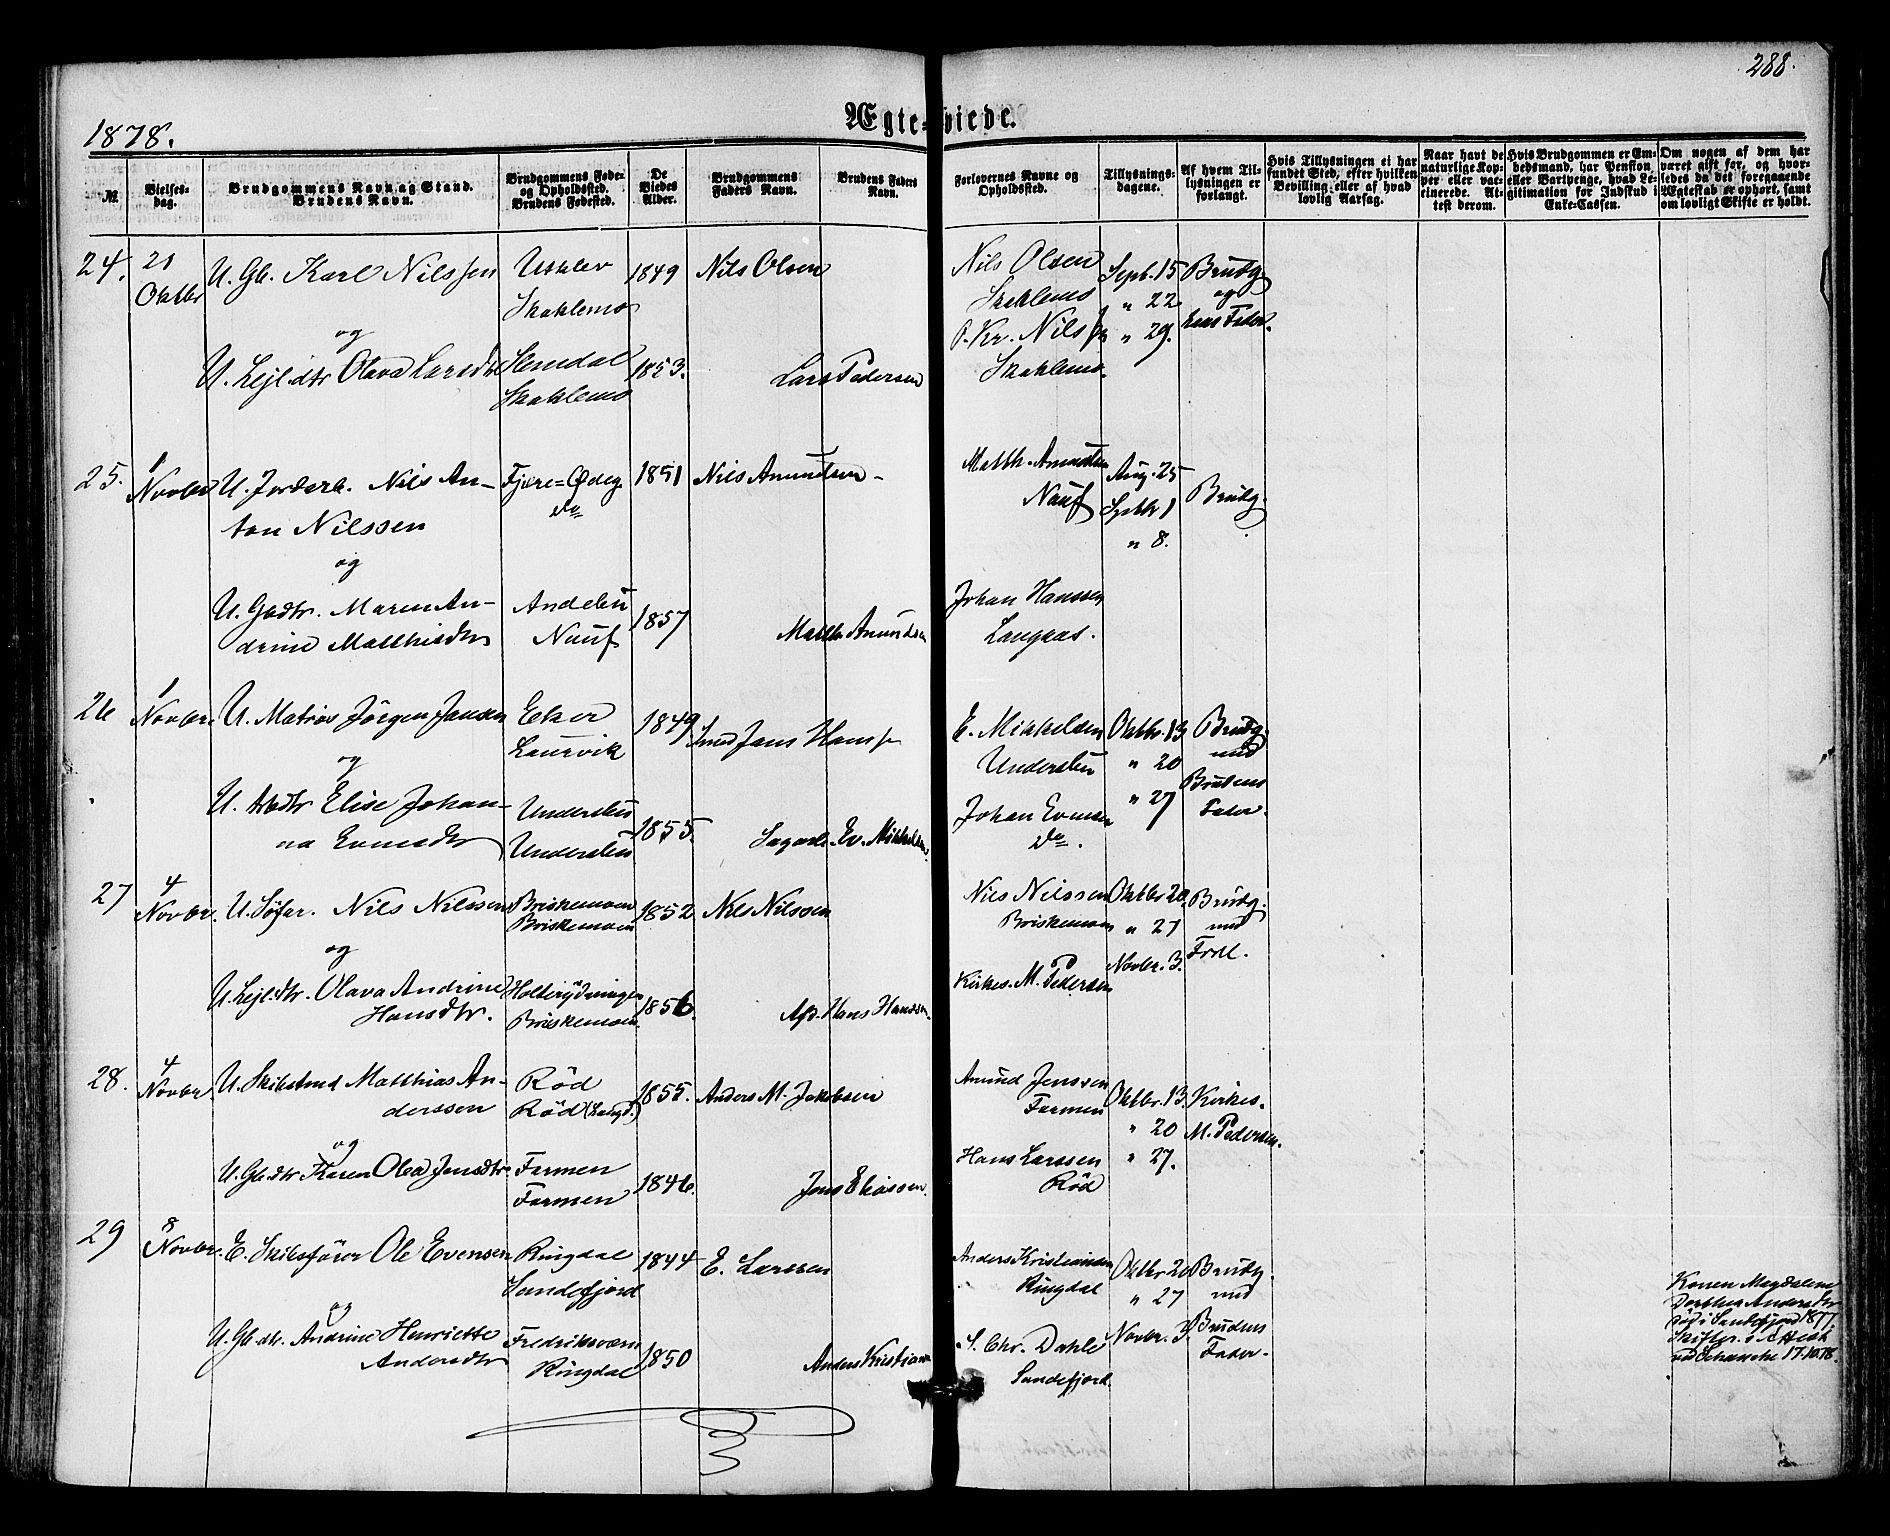 288.
1878.
Ægte-viede.
№
Vielses-
dag.
Brudgommens Navn og Stand.
Brudens Navn.
Brudgommens Føde-
og Opholdssted.
Brudens Fødested.
De
Viedes
Alder.
Brudgommens
Faders Navn.
Brudens Faders
Navn.
Forlovernes Navne og
Opholdssted.
Tillysnings-
dagene.
Af hvem Til-
lysningen er
forlangt.
Hvis Tillysningen ei har
fundet Sted, efter hvilken
Bevilling eller af hvad
lovlig Aarsag.
Naar havt de
naturlige Kop-
per eller vac-
cinerede. At-
test derom.
Hvis Brudgommen er Em-
bedsmand, har Pension
eller Vartpenge, hvad Le-
gitimation for Indskud i
Enke-Cassen.
Om nogen af dem har
været gift før, og hvor-
ledes da det foregaaende
Ægteskab er ophørt, samt
om lovligt Skifte er holdt.
24.
21
Oktbr
U. Gb. Karl Nilssen
og
U. Lejl.dtr Olava Larsdtr
Skoklemo
Skoklemo
1849
1853.
Nils Olsen
Lars Pedersen
Nils Olsen
Skoklemo
O. Kr. Nilss
Skoklemo.
Septb. 15
" 22
" 29.
Brudg
og
hans Fader.
25.
1
Novbr
U. Jorderb. Nils An-
ton Nilssen
og
U. Gbdtr. Maren An-
drine Matthisdtr
Fjære=Ødeg
do
Andebu
Nauf
1851
1857
Nils Amundsen -
Matth Amundsen
Matth. Amundsen
Nauf
Johan Hanssen
Langaas.
Aug. 25
Septbr 1
" 8.
Brudg.
26
1
Novbr.
U. Matros Jørgen Jansen
og
U. Elise Johan-
na Evensdtr
Eker
Laurvik
Undersbu
Undersbu
1849
1855.
Smed Jans Hanss
Sagarb. Ev. Mikkelsen.
E. Mikkelsen
Undersbu
Johan Evensen
do.
Oktbr. 13
" 20
" 27
Brudg.
med
Brudens
Fader.
27
4
Novbr.
U. Søfar. Nils Nilssen
og
U. Lejl.dtr. Olava Andrine
Hansdtr.
Briskemoen
Briskemoen
Holterydningen
Briskemoen.
1852
1856.
Nils Nilssen
Afd. Hans Hanssen.
Nils Nilssen
Briskemoen
Kirkes. M. Pedersen
Oktbr 20,
" 27
Novbr. 3.
Brudg.
med
Forl.
28.
4
Novbr
U. Skibstmd Matthias An-
derssen
og
U. Gb.dtr Karen Olea Jensdtr
Rød
Rød (Langd.)
Farmen
Farmen
1855.
1846.
Anders M. Jakobsen
Jens Eliassen.
Amund Jenssen
Farmen
Hans Larssen
Rød
Oktbr. 13.
" 20
" 27.
Kirkes.
M. Pedersen.
29
8
Novbr.
E. Skibsfører Ole Evensen
og
U. Gb.dtr. Andrine Henriette
Andersdtr
Ringdal
Sandefjord
Fredriksværn
Ringdal
1844
1850
E. Larssen
Anders Kristians
Anders Kristiansen
Ringdal
S. Chr. Dahle
Sandefjord.
Oktbr 20
" 27
Novbr. 3
Brudg.
med
Brudens
Fader.
Karen Magdalene
Dorthea Andersdtr
død i Sandefjord 1877,
Skifter. Attest
17.10.78.